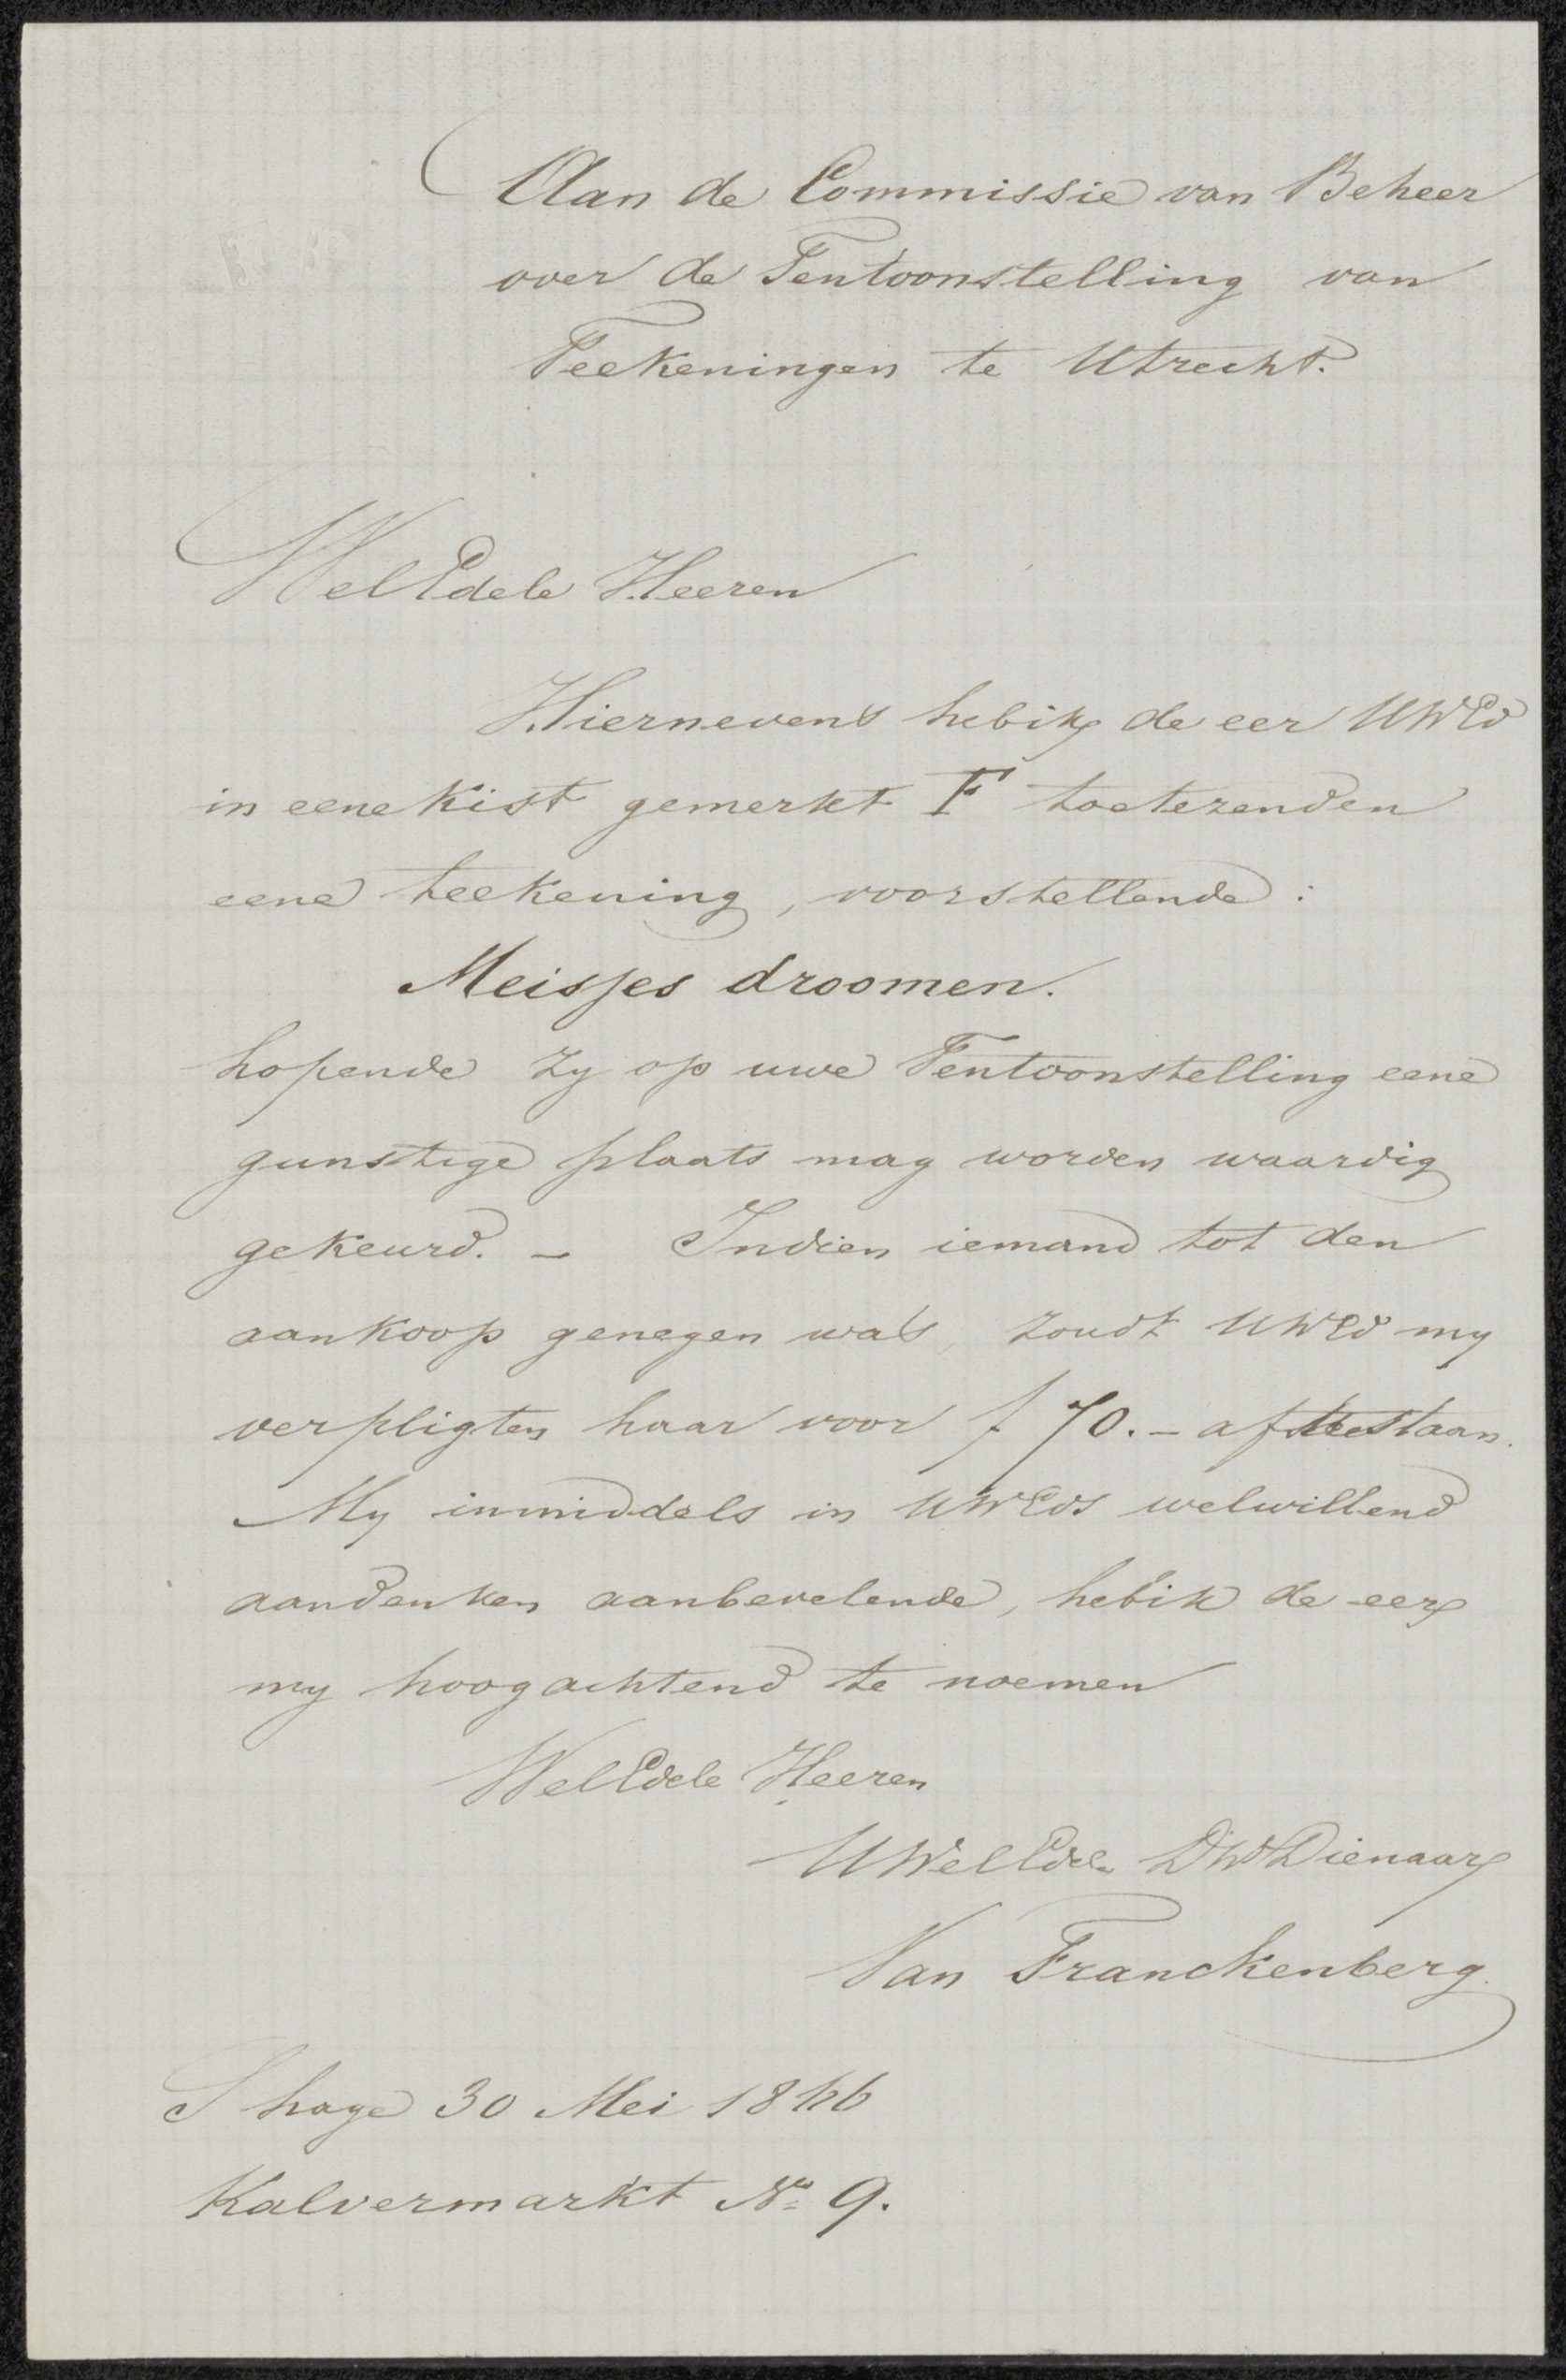 Aan de Commissie van Beheer
over de Tentoonstelling van
Teekeningen te Utrecht.
WelEdele Heeren
Hiernevens heb ik de eer UWEd
in eene kist gemerkt F toetezenden
eene teekening, voorstellende:
Meisjes droomen.
hopende zy op uwe Tentoonstelling eene
gunstige plaats mag worden waardig
gekeurd. – Indien iemand tot den
aankoop genegen was, zoudt UWEd my
verpligten haar voor f 70.– aftestaan.
My inmiddels in UWEds welwillend
aandenken aanbevelende, heb ik de eer
my hoogachtend te noemen
WelEdele Heeren
UWelEdele DWDienaar
Van Franckenberg
S hage 30 Mei 1866
Kalvermarkt No 9.